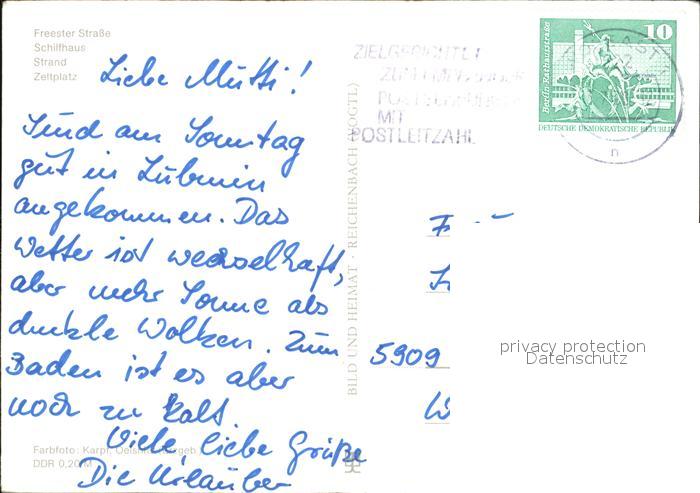 Freester Straße
Schilfhaus
Strand
Zeltplatz
Liebe Mutti!
Sind am Sonntag
gut in Lubmin
angekommen. Das
Wetter ist wechselhaft,
aber mehr Sonne als
dunkle Wolken. Zum
Baden ist es aber
noch zu kalt.
Viele, liebe Grüße
Die Urlauber
Farbfoto: Karpf, Oelsnitz (Erzgeb.)
DDR 0,20 M
BILD UND HEIMAT · REICHENBACH (VOGTL)
ZIELGERICHTET
ZUM EMPFÄNGER
MIT
POSTLEITZAHL
10
Berlin-Rathausstraße
DEUTSCHE DEMOKRATISCHE REPUBLIK
n
5909
privacy protection
Datenschutz